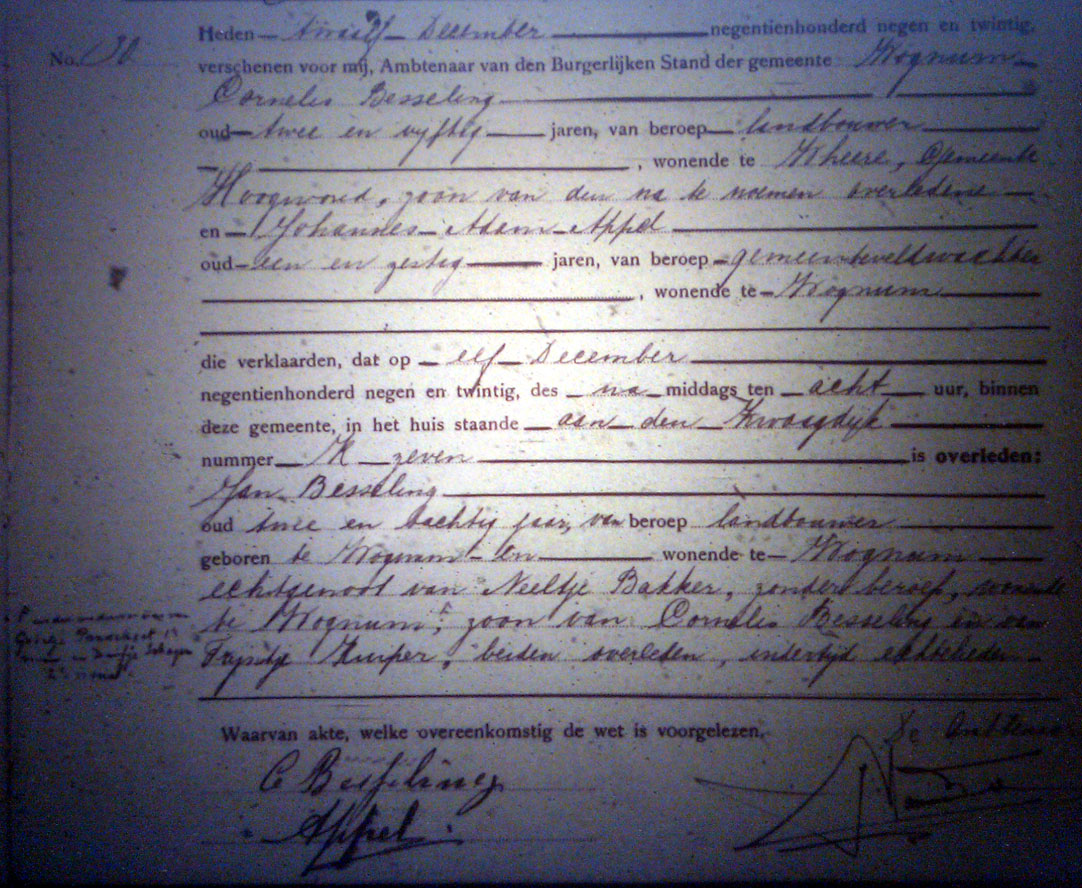 No. 30
Heden twaalf December negentienhonderd negen en twintig,
verschenen voor mij, Ambtenaar van den Burgerlijken Stand der gemeente Wognum
Cornelis Besseling
oud twee en vyftig jaren, van beroep landbouwer
, wonende te Wheere, Gemeente
Hoogwoud, zoon van den na te noemen overledene
en Johannes Adam Appel
oud een en zestig jaren, van beroep gemeenteveldwachter
, wonende te Wognum
die verklaarden, dat op elf December
negentienhonderd negen en twintig, des na middags ten acht uur, binnen
deze gemeente, in het huis staande aan den Zwaagdijk
nummer K zeven is overleden:
Jan Besseling
oud twee en tachtig jaar, van beroep landbouwer
geboren te Wognum en wonende te Wognum
echtgenoot van Neeltje Bakker, zonder beroep, wonende
te Wognum, zoon van Cornelis Besseling en van
Trijntje Kuiper, beiden overleden, indertijd echtelieden
Waarvan akte, welke overeenkomstig de wet is voorgelezen.
De Ambtenaar
C Besseling
Appel